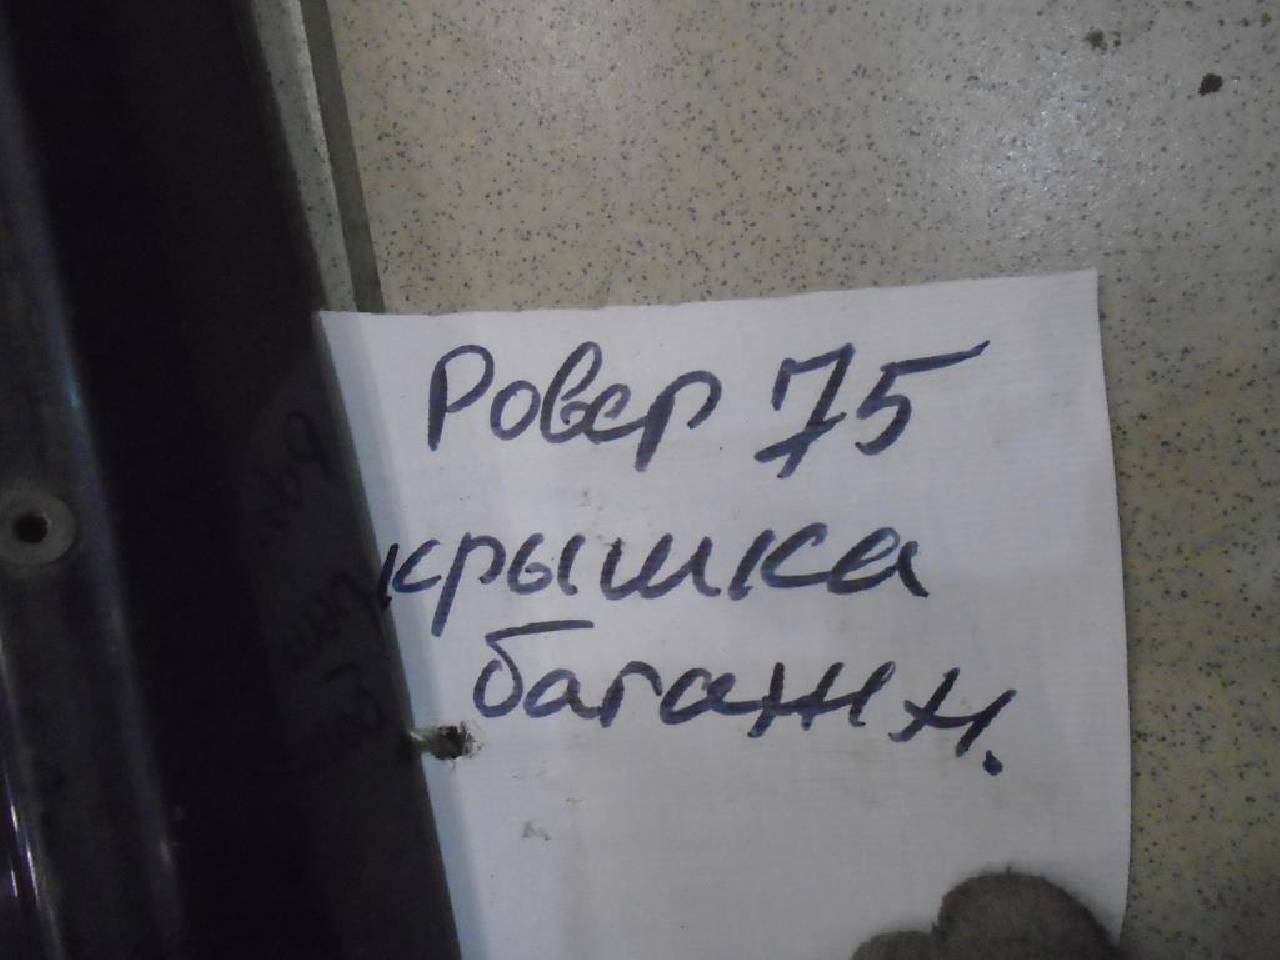 Ровер 75
крышка
багажн.